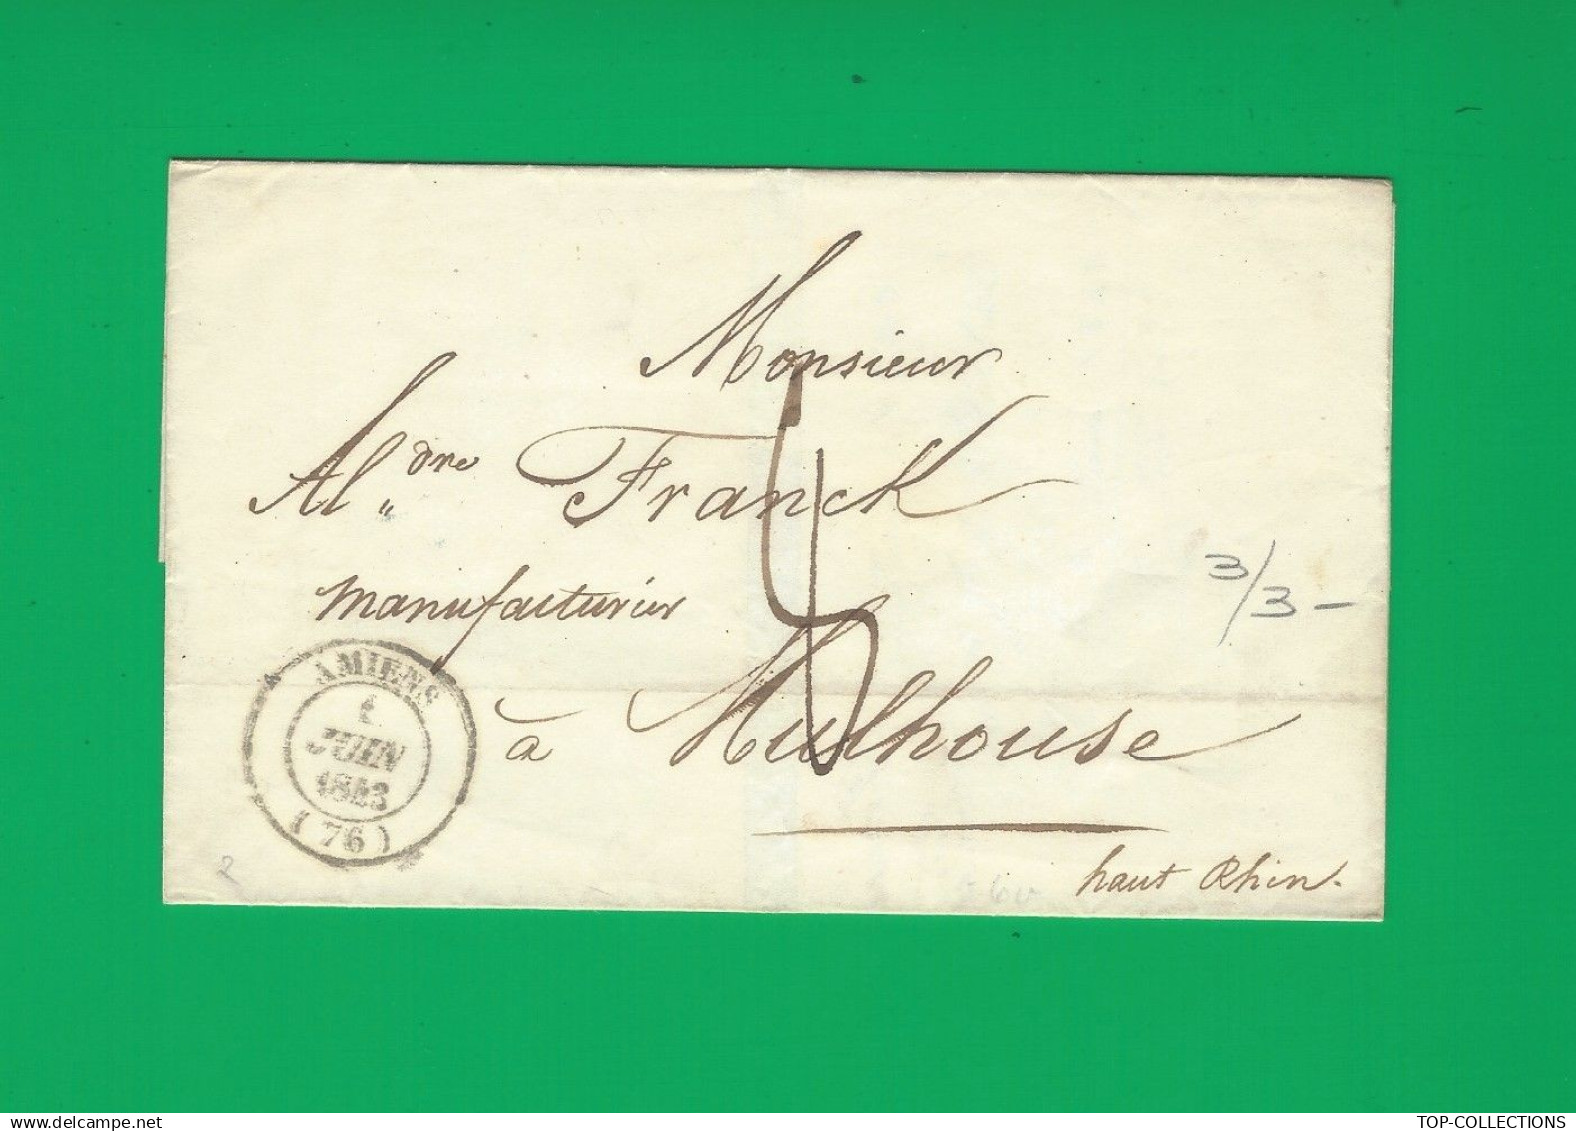 Monsieur
Al„dre Franck
manufacturier
à Mulhouse
haut Rhin.
3/3-
AMIENS
1
JUIN
1843
(76)
2
TOP-COLLECTIONS